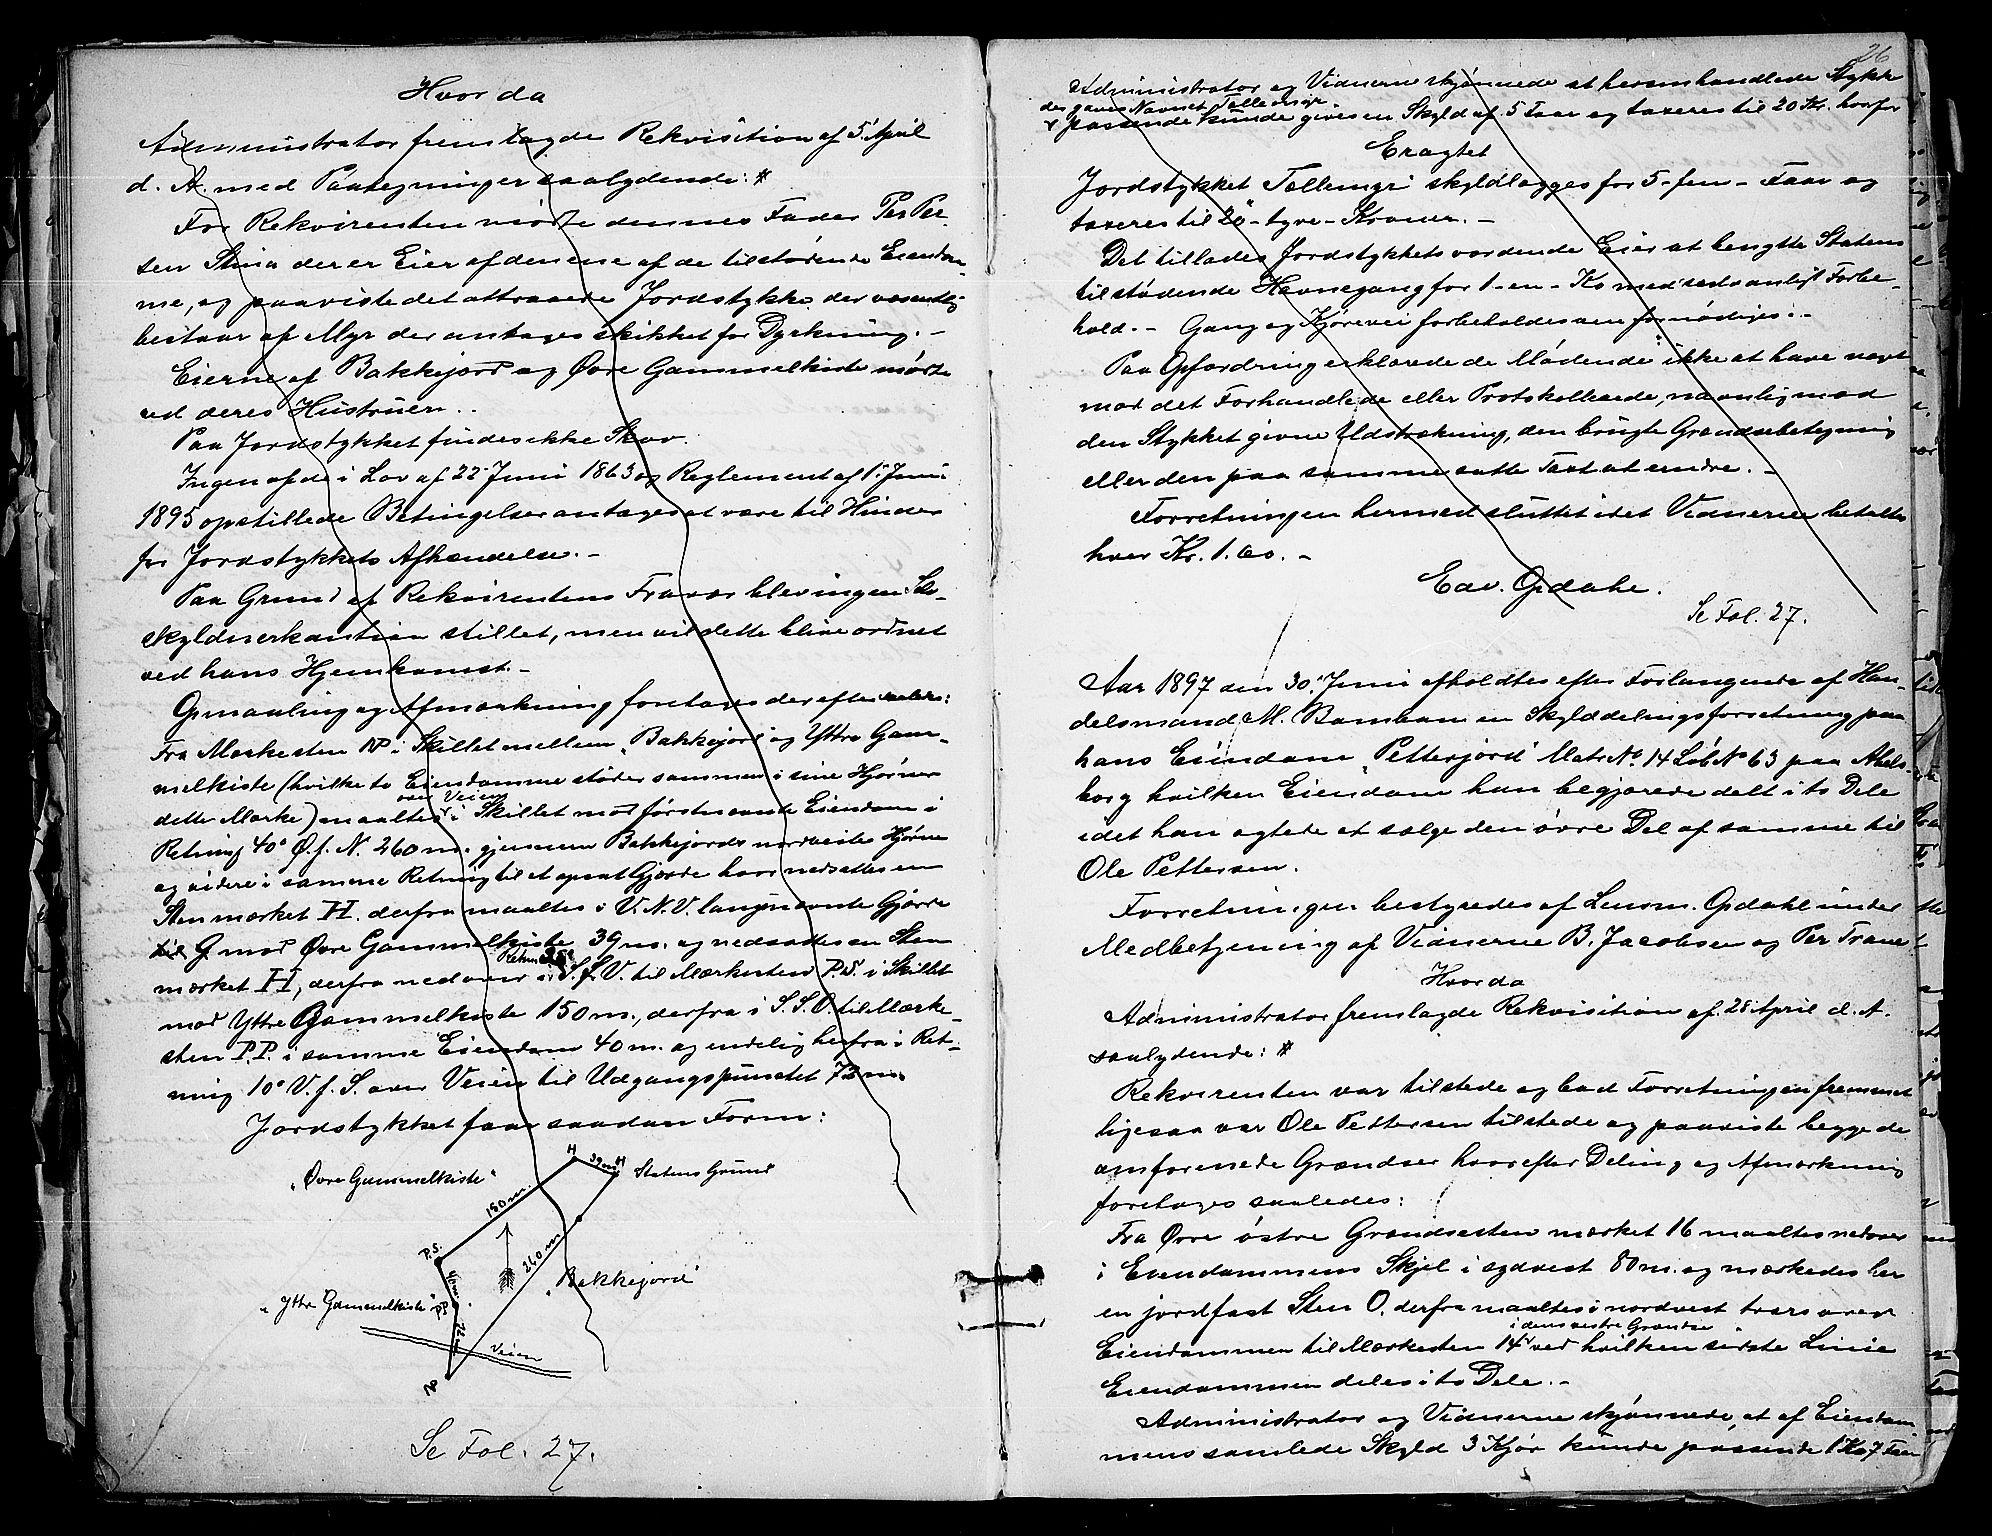 Hvorda
Administrator fremlagde Rekvisition af 5' April
d. A. med Paategninger saalydende: #
For Rekvirenten mødte dennes Fader Per Per-
sen Stina der er Eier af den ene af de tilstødende Eiendom-
me, og paaviste det attraaede Jordstykke der væsentlig
bestaar af Myr der antages skikket for Dyrkning. -
Eierne af Bakkejord og Øvre Gammelkiste mødte
ved deres Hustruer.
Paa Jordstykket findes ikke Skov.
Ingen af de i Lov af 22' Juni 1863 og Reglement af 1' Juni
1895 opstillede Betingelser antages at være til Hinder
for Jordstykkets Afhændelse. -
Paa Grund af Rekvirentens Fravær blev ingen Se-
skyldnerkaution stillet, men vil dette blive ordnet
ved hans Hjemkomst. -
Opmaaling og Afmærkning foretages derefter saales:
Fra Mærkesten NP i Skillet mellem „Bakkejord" og Yttre Gam-
melkiste (hvilke to Eiendomme støder sammen i sine Hjørner
over Veien
dette Mærke) maaltes i Skillet mod førstnævnte Eiendom i
Retning 40° Ø.f. N. 260 m. gjennem Bakkejords nordveste Hjørne
og videre i samme Retning til et opsat Gjærde hvor nedsattes en
Sten mærket H. derfra maaltes i V.N.V. langs nævnte Gjærde
til G mod Øvre Gammelkiste 39 m. og nedsattes en Sten
mærket H, derfra nedover i S.f.V. til Mærkesten P.S. i Skillet
mod Yttre Gammelkiste 150 m., derfra i S.S.O. til Mærke-
sten P.P. i samme Eiendom 40 m. og endelig herfra i Ret-
ning 10° V.f. S. over Veien til Udgangspunctet 72 m.
Jordstykket faar saadan Form:
H 39 m H
„Øvre Gammelkiste" Statens Grund
150 m.
P.S.
260 m
40 m
„Bakkejord"
„Yttre Gammelkiste" P.P.
72 m
Veien
NP
Se Fol. 27.
26
Administrator og Vidnerne skjønnede at heromhandlede Stykke
der gaves Navnet
passende kunde gives en Skyld af 5 Faar og taxeres til 20 Kr. hvorfor
Eragtet
Jordstykket skyldlægges for 5 - fem - Faar og
taxeres til 20 - tyve - Kroner. -
Det tillades Jordstykkets vordende Eier at benytte Statens
tilstødende Havnegang for 1 - en - Ko med sedvanligt Forbe-
hold. - Gang og Kjørevei forbeholdes om fornødiges. -
Paa Opfordring erklærede de Mødende ikke at have noget
mod det Forhandlede eller Protokollerede, navnlig mod
den Stykket givne Udstrækning, den brugte Grændsebetegning
eller den paa samme satte Taxt at erindre. -
Forretningen hermed sluttet idet Vidnerne betaltes
hver Kr. 1.60. -
Edv. Opdahl.
Se Fol. 27.
Aar 1897 den 30' Juni afholdtes efter Forlangende af Han-
delsmand M. en Skylddelingsforretning paa
hans Eiendom „Petterjord" Matr No. 14 Løb No 63 paa Abels-
borg hvilken Eiendom han begjærede delt i to Dele
idet han agtede at sælge den øvre Del af samme til
Ole Pettersen.
Forretningen bestyredes af Lensm. Opdahl under
Medbetjening af Vidnerne B. Jacobsen og Per Trane
Hvorda
Administrator fremlagde Rekvisition af 28' April d. A.
saalydende: #
Rekvirenten var tilstede og bad Forretningen fremmet
ligesaa var Ole Pettersen tilstede og paaviste begge de
omforenede Grændser hvorefter Deling og Afmærkning
foretages saaledes:
Fra Øvre østre Grændsesten mærket 16 maaltes nedover
i Eiendommens Skjel i sydvest 80 m. og mærkedes her
en jordfast Sten O. derfra maaltes i nordvest tvers over
i dens vestre Grændse
Eiendommen til Mærkesten 14 ved hvilken sidste Linie
Eiendommen deles i to Dele. -
Administrator og Vidnerne skjønnede, at af Eiendom
mens samlede Skyld 3 Kjør kunde passende 1 Ko 7 Faar